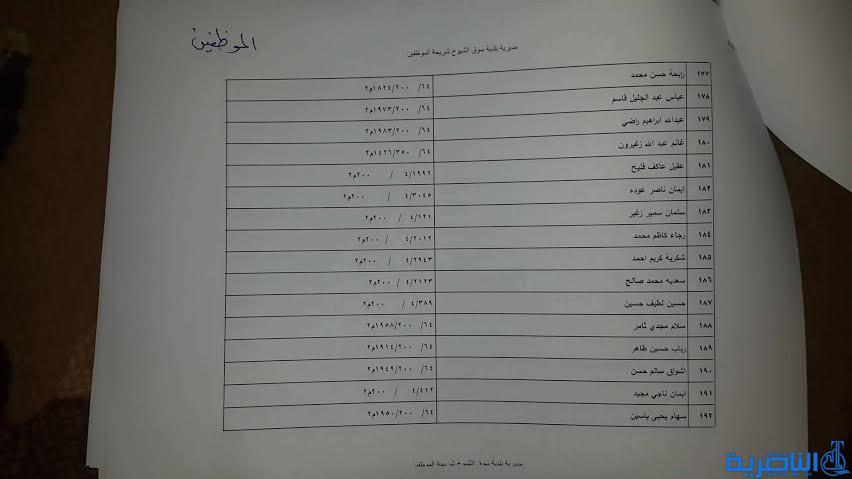 الموظفين
مديرية بلدية سوق الشيوخ شريحة الموظفين
١٧٧ رابحة حسن محمد ٦٤/ ١٨٢٤/٢٠٠م٢
١٧٨ عباس عبد الجليل قاسم ٦٤/ ١٩٧٣/٢٠٠م٢
١٧٩ عبدالله ابراهيم راضي ٦٤/ ١٩٨٣/٢٠٠م٢
١٨٠ غانم عبد الله زغيرون ٦٤/ ١٤٢٦/٣٥٠م٢
١٨١ عقيل عاكف فليح ٤/١٩٩٢ / ٢٠٠م٢
١٨٢ ايمان ناصر عوده ٤/٣٠٤٥ / ٢٠٠م٢
١٨٣ سلمان سمير زغير ٤/١٢١ / ٢٠٠م٢
١٨٤ رجاء كاظم محمد ٤/٢٠١٢ / ٢٠٠م٢
١٨٥ شكرية كريم احمد ٤/٢٩٤٣ / ٢٠٠م٢
١٨٦ سعديه محمد صالح ٤/٢١٢٣ / ٢٠٠م٢
١٨٧ حسين لطيف حسين ٤/٣٨٩ / ٢٠٠م٢
١٨٨ سلام مجدي ثامر ٦٤/ ١٩٥٨/٢٠٠م٢
١٨٩ رباب حسين طاهر ٦٤/ ١٩١٤/٢٠٠م٢
١٩٠ اشواق سالم حسن ٦٤/ ١٩٤٩/٢٠٠م٢
١٩١ ايمان ناجي مجيد ٤/٤١٢ / ٢٠٠م٢
١٩٢ سهام يحيى ياسين ٦٤/ ١٩٥٠/٢٠٠م٢
مديرية بلدية سوق الشيوخ شريحة الموظفين
الناصرية